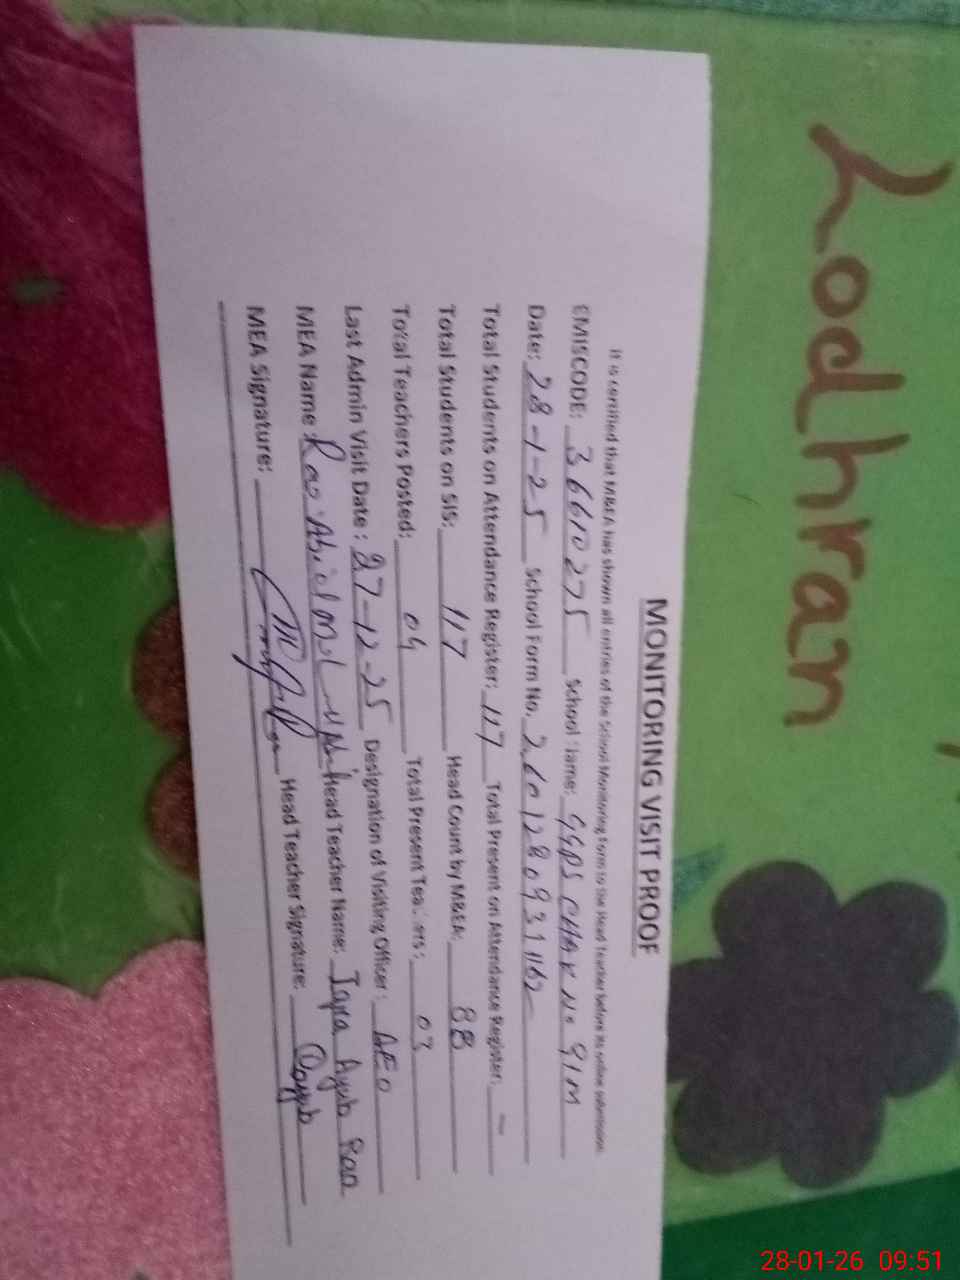 Lodhran
MONITORING VISIT PROOF
It is certified that M&EA has shown all entries of the School Monitoring Form to the Head Teacher before its online submission
EMISCODE: 36610275 School Name: GGPS CHAK No 91M
Date: 28-1-25 School Form No. 2601280931162
Total Students on Attendance Register: 117 Total Present on Attendance Register: –
Total Students on SIS: 117 Head Count by M&EA: 88
Total Teachers Posted: 04 Total Present Teachers: 03
Last Admin Visit Date: 27-12-25 Designation of Visiting Officer: AEO
MEA Name: Rao Head Teacher Name: Iqra Ayub Rao
MEA Signature: Head Teacher Signature: Qayub
28-01-26 09:51